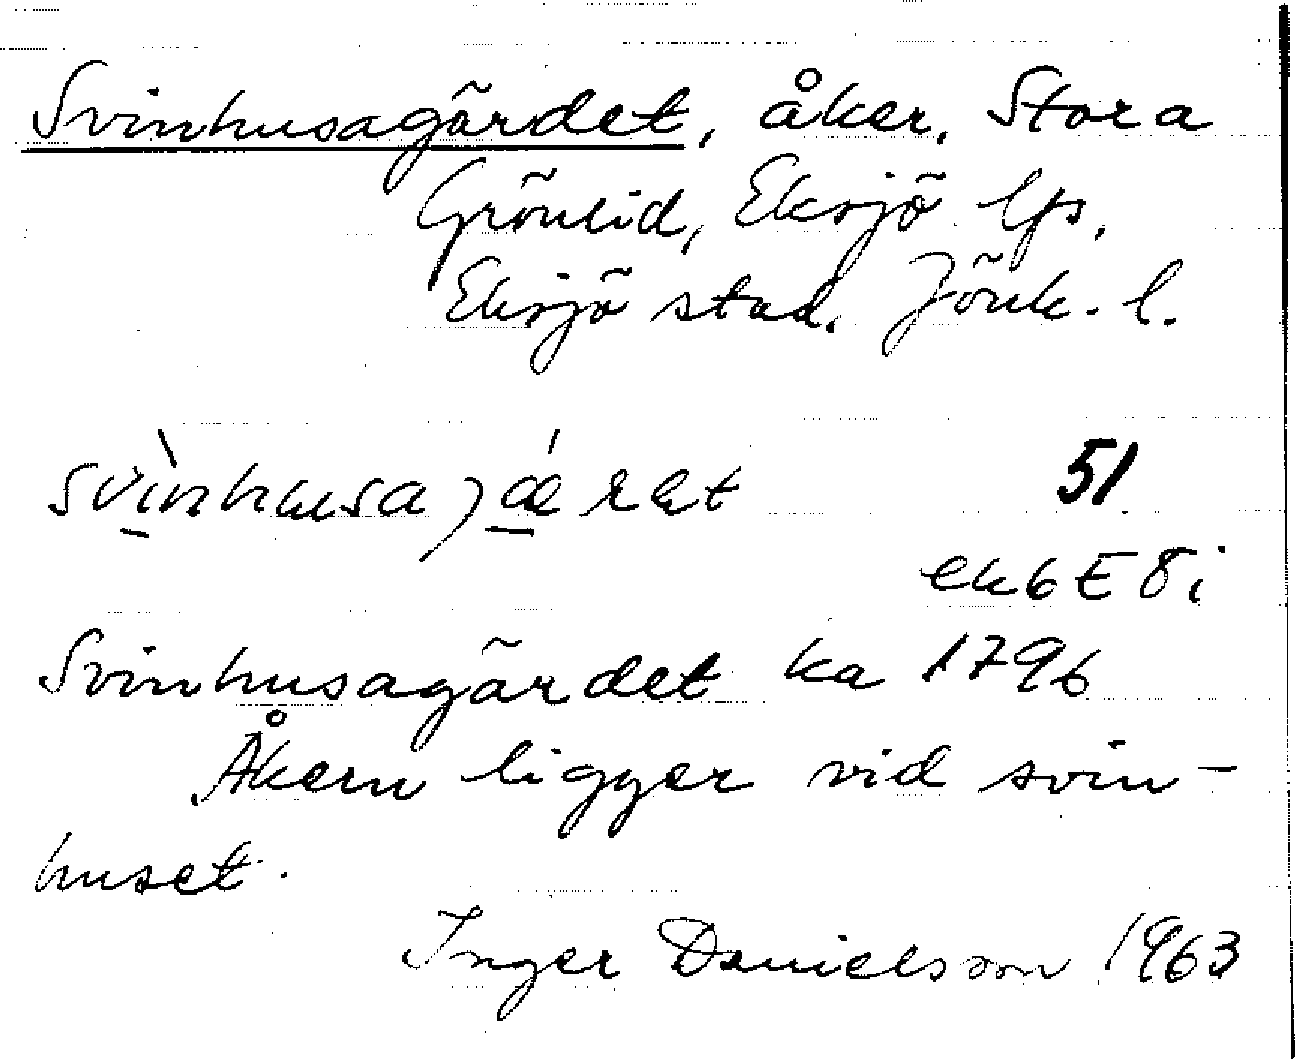 Svinhusagärdet, åker, Stora
Grönlid, Eksjö lfs,
Eksjö stad, Jönk. l.
svìnhusajǽret 51
ek 6 E 8 i
Svinhusagärdet ka 1796
Åkern ligger vid svin-
huset.
Inger Danielsson 1963